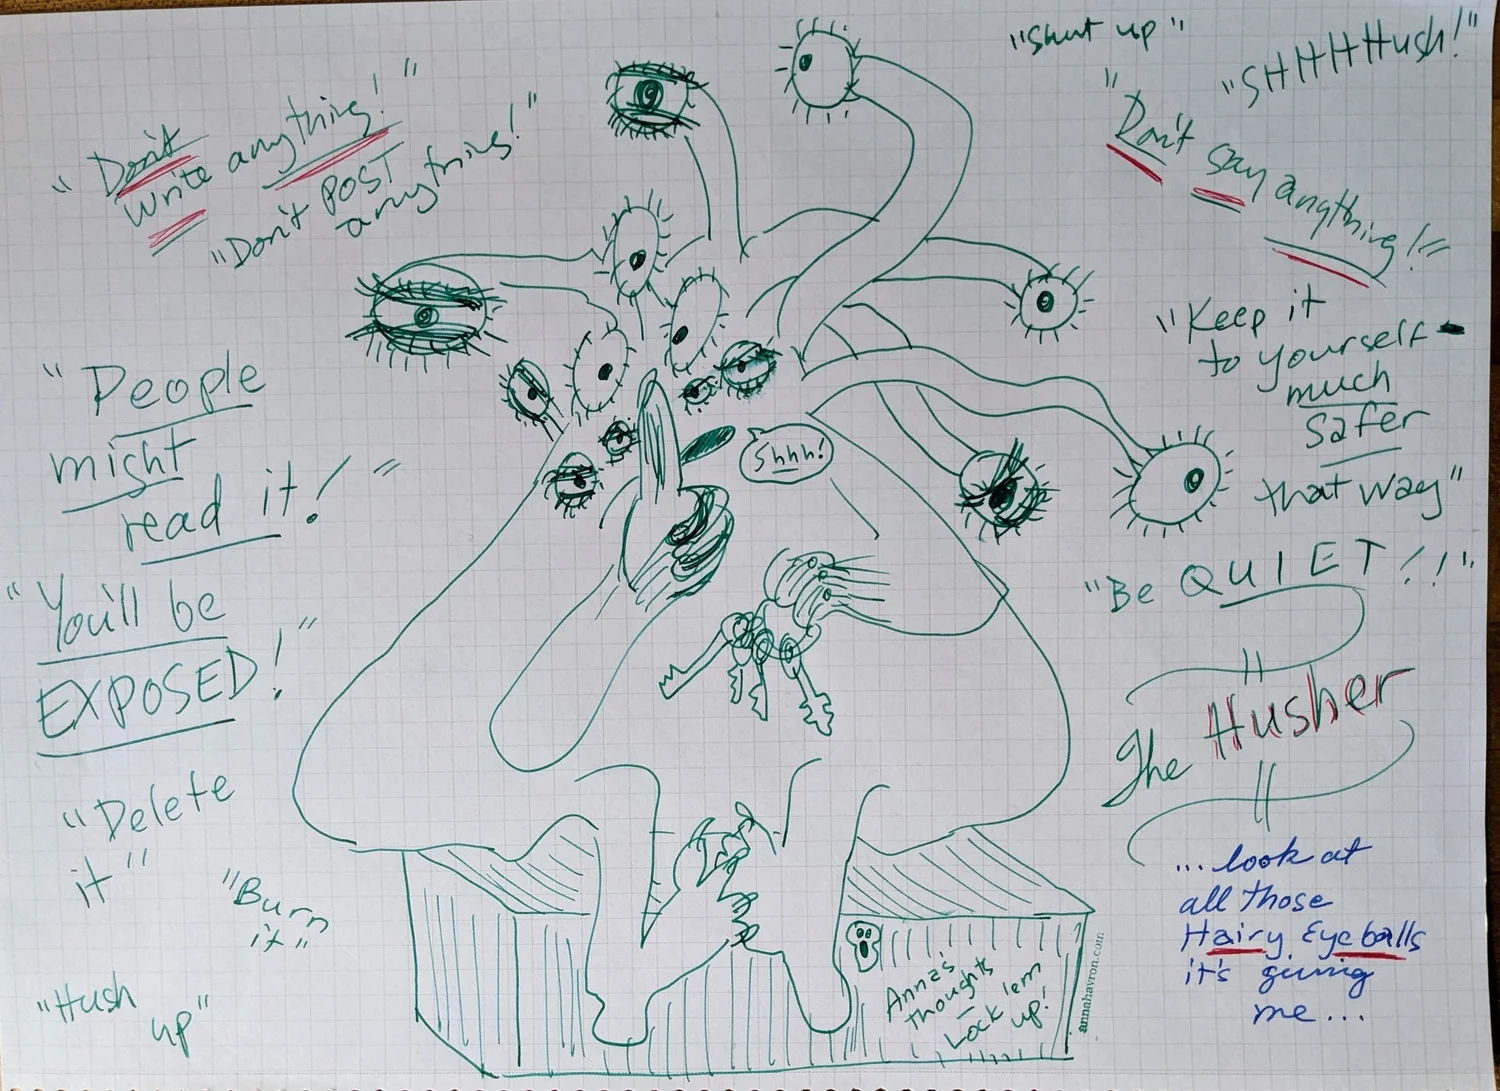 "Don't
Write anything!"
"Don't POST
anything!"
"People
might
read it!"
"You'll be
EXPOSED!"
"Delete
it"
"Burn
it"
"Hush
up"
Shhh!
"Shut up"
"SHHHHush!"
"Don't say anything!"
"Keep it
to yourself -
much
safer
that way"
"Be QUIET!!"
The Husher
...look at
all those
Hairy Eyeballs
it's giving
me...
Anna's
thoughts
-
Lock 'em
up!
annahavron.com